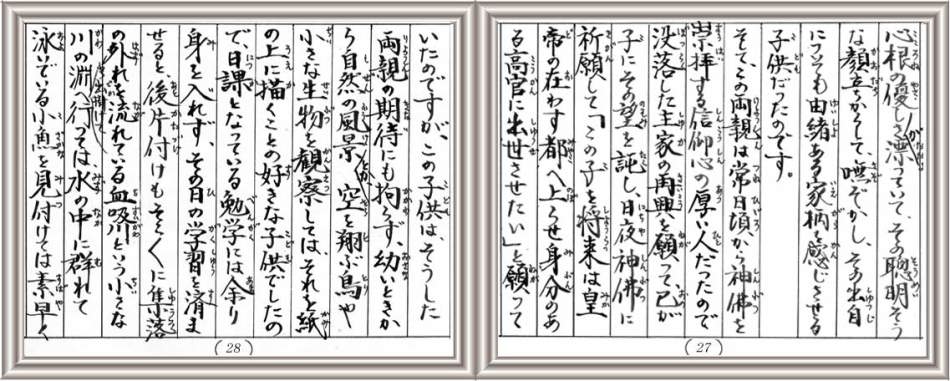 心根の優しさが漂っていて、その聰明そう
な顔立ちからして、嘸ぞかし、その出自
についても由緒ある家柄を感じさせる
子供だったのです。
そして、この両親は常日頃から神佛を
崇拝する信仰心の厚い人だったので
没落した主家の再興を願って己が
子にその望を託し、日夜神佛に
祈願して「この子を将来は皇
帝の在わす都へ上らせ身分のあ
る高官に出世させたい」と願って
(27)
いたのですが、この子供は、そうした
両親の期待にも拘らず、幼いときか
ら自然の風景とか、空を翔ぶ鳥や
小さな生物を観察しては、それを紙
の上に描くことの好きな子供でしたの
で、日課となっている勉学には余り
身を入れず、その日の学習を済ま
せると、後片付けもそそくに集落
の外れを流れている血吸川という小さな
川の淵へ行っては水の中に群れて
泳いでいる小魚を見付けては素早く
(28)